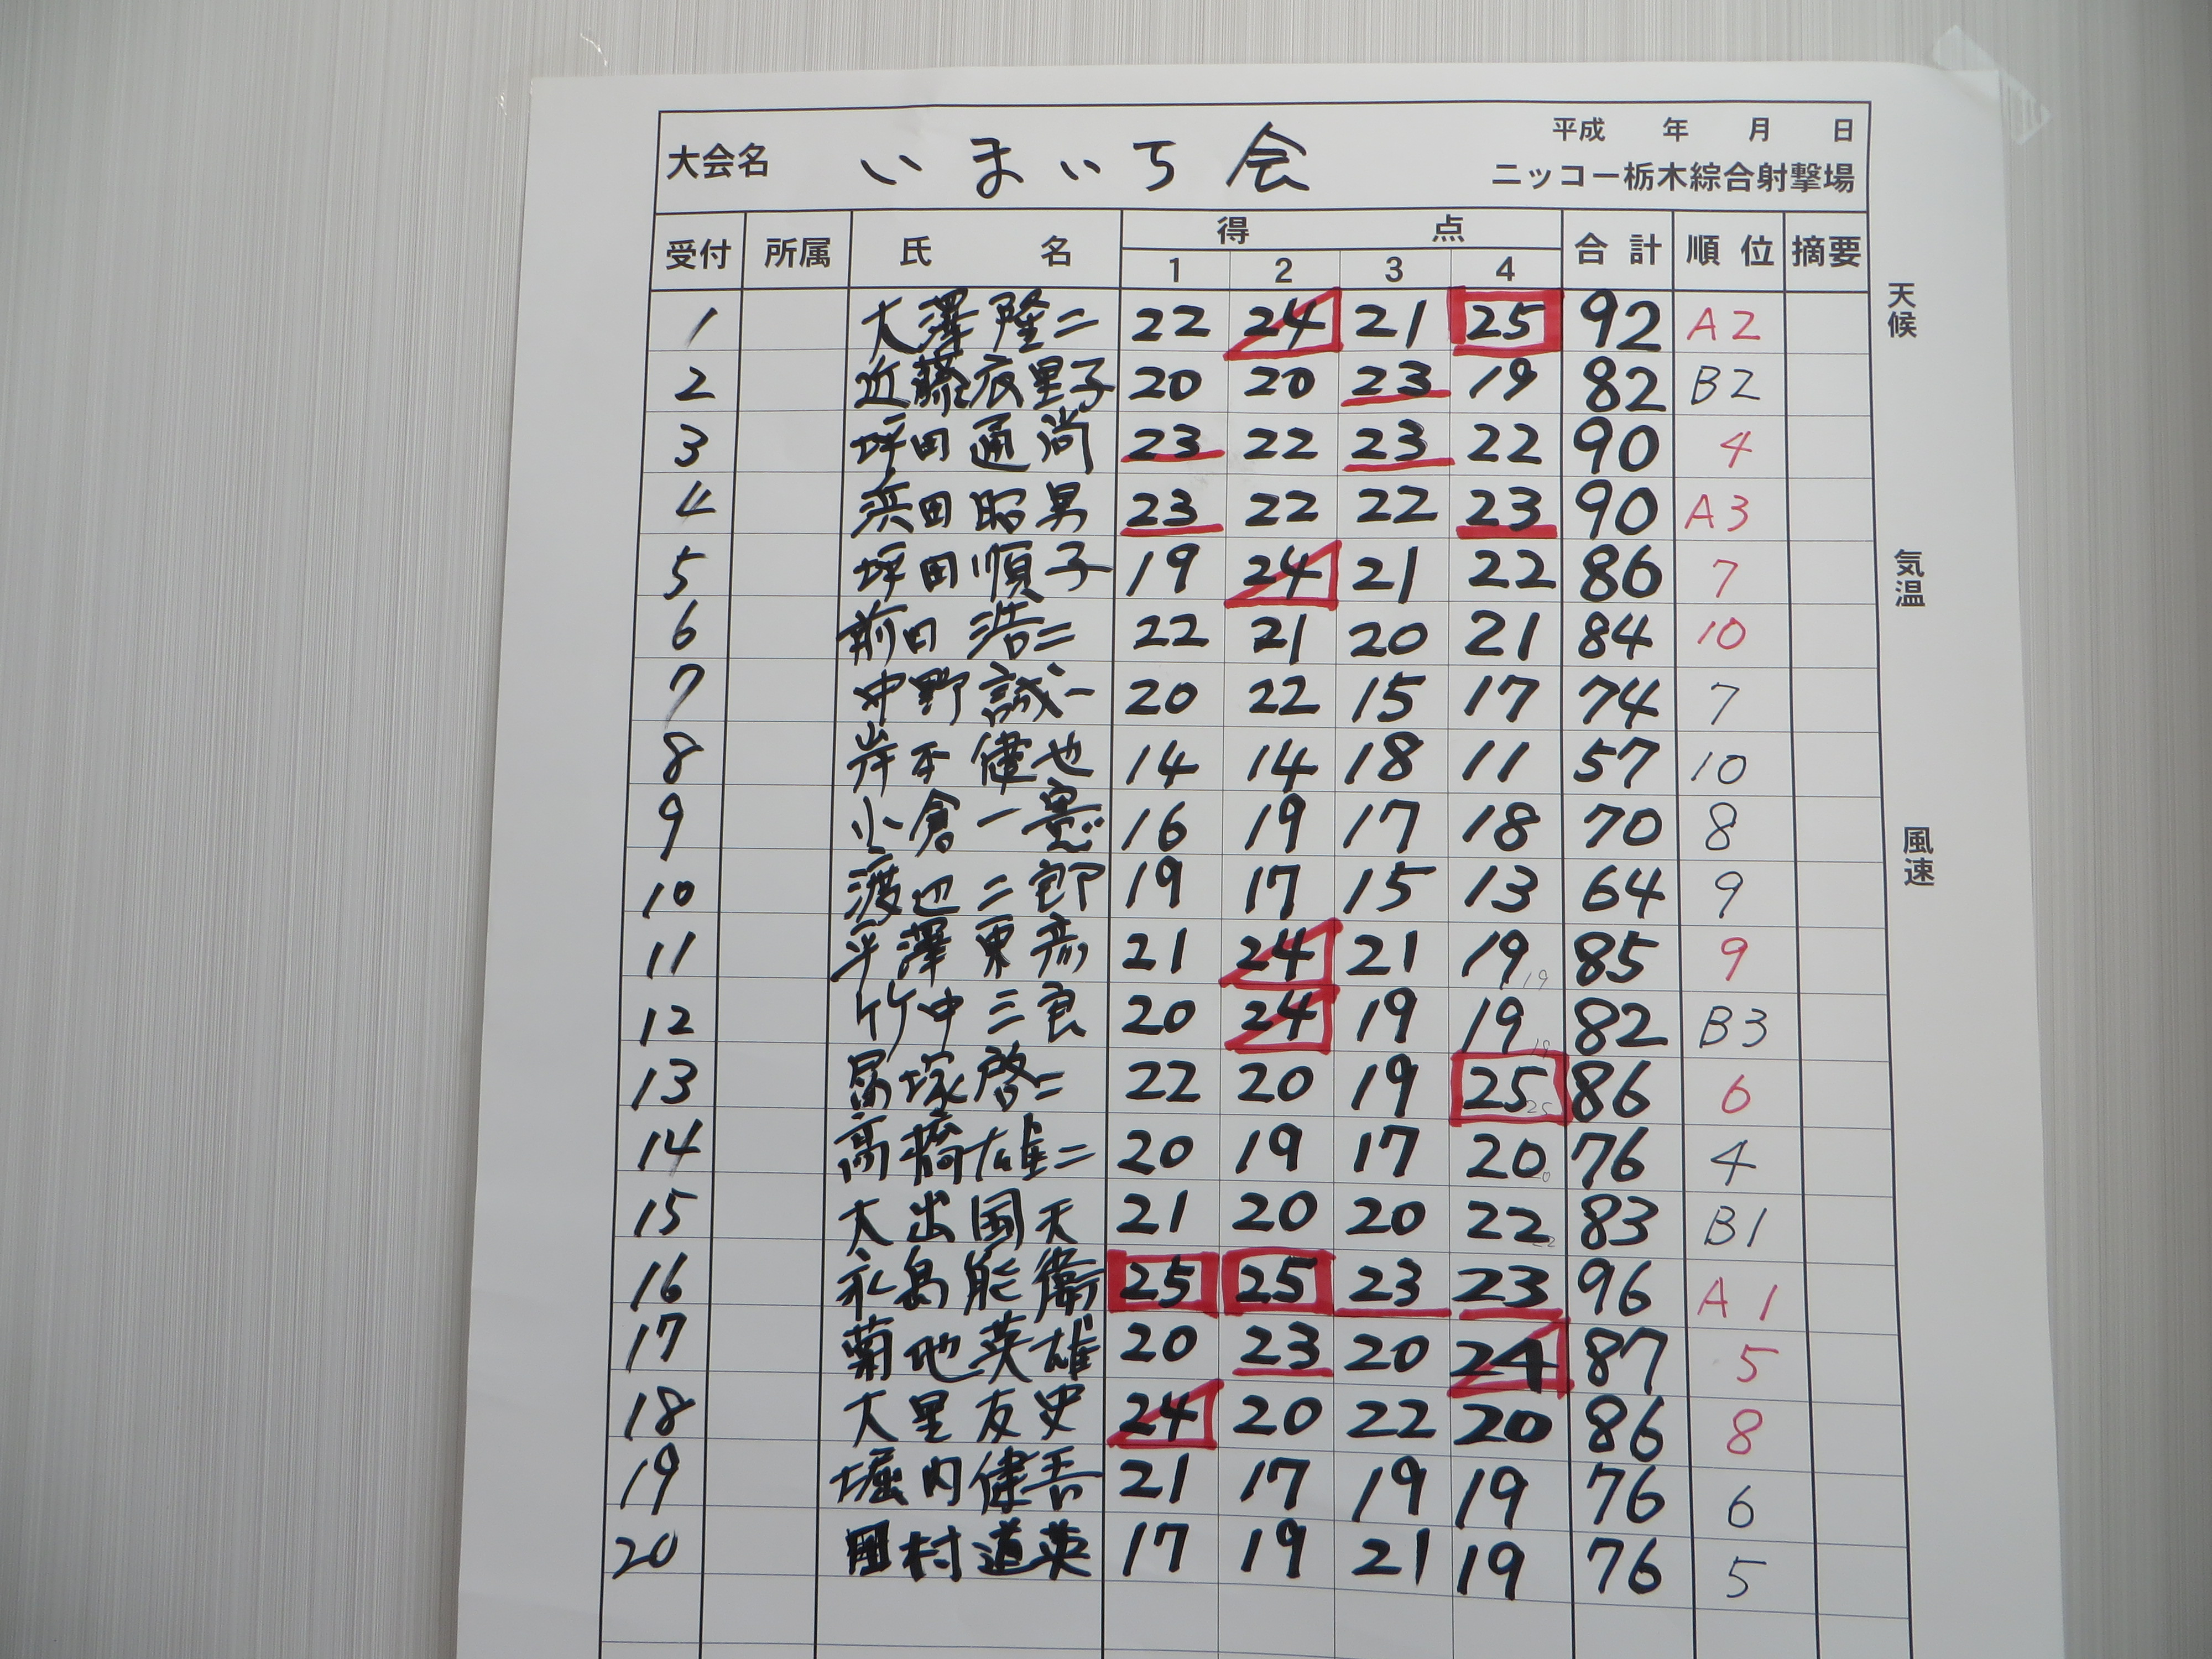 平成 年 月 日
大会名 いまいち会 ニッコー栃木綜合射撃場
受付 所属 氏名 得点 合計 順位 摘要
1 2 3 4
1 大澤隆二 22 24 21 25 92 A2
2 近藤衣里子 20 20 23 19 82 B2
3 坪田通尚 23 22 23 22 90 4
4 浜田昭男 23 22 22 23 90 A3
5 坪田順子 19 24 21 22 86 7
6 前田浩二 22 21 20 21 84 10
7 中野誠一 20 22 15 17 74 7
8 岸本健也 14 14 18 11 57 10
9 小倉一憲 16 19 17 18 70 8
10 渡辺二郎 19 17 15 13 64 9
11 平澤東彦 21 24 21 19 19 85 9
12 竹中三良 20 24 19 19 19 82 B3
13 塚啓二 22 20 19 25 25 86 6
14 高橋雄二 20 19 17 20 76 4
15 大出国夫 21 20 20 22 22 83 B1
16 永島能衛 25 25 23 23 96 A1
17 菊地英雄 20 23 20 24 87 5
18 大里友史 24 20 22 20 86 8
19 堀内健吾 21 17 19 19 76 6
20 田村道英 17 19 21 19 76 5
天候
気温
風速